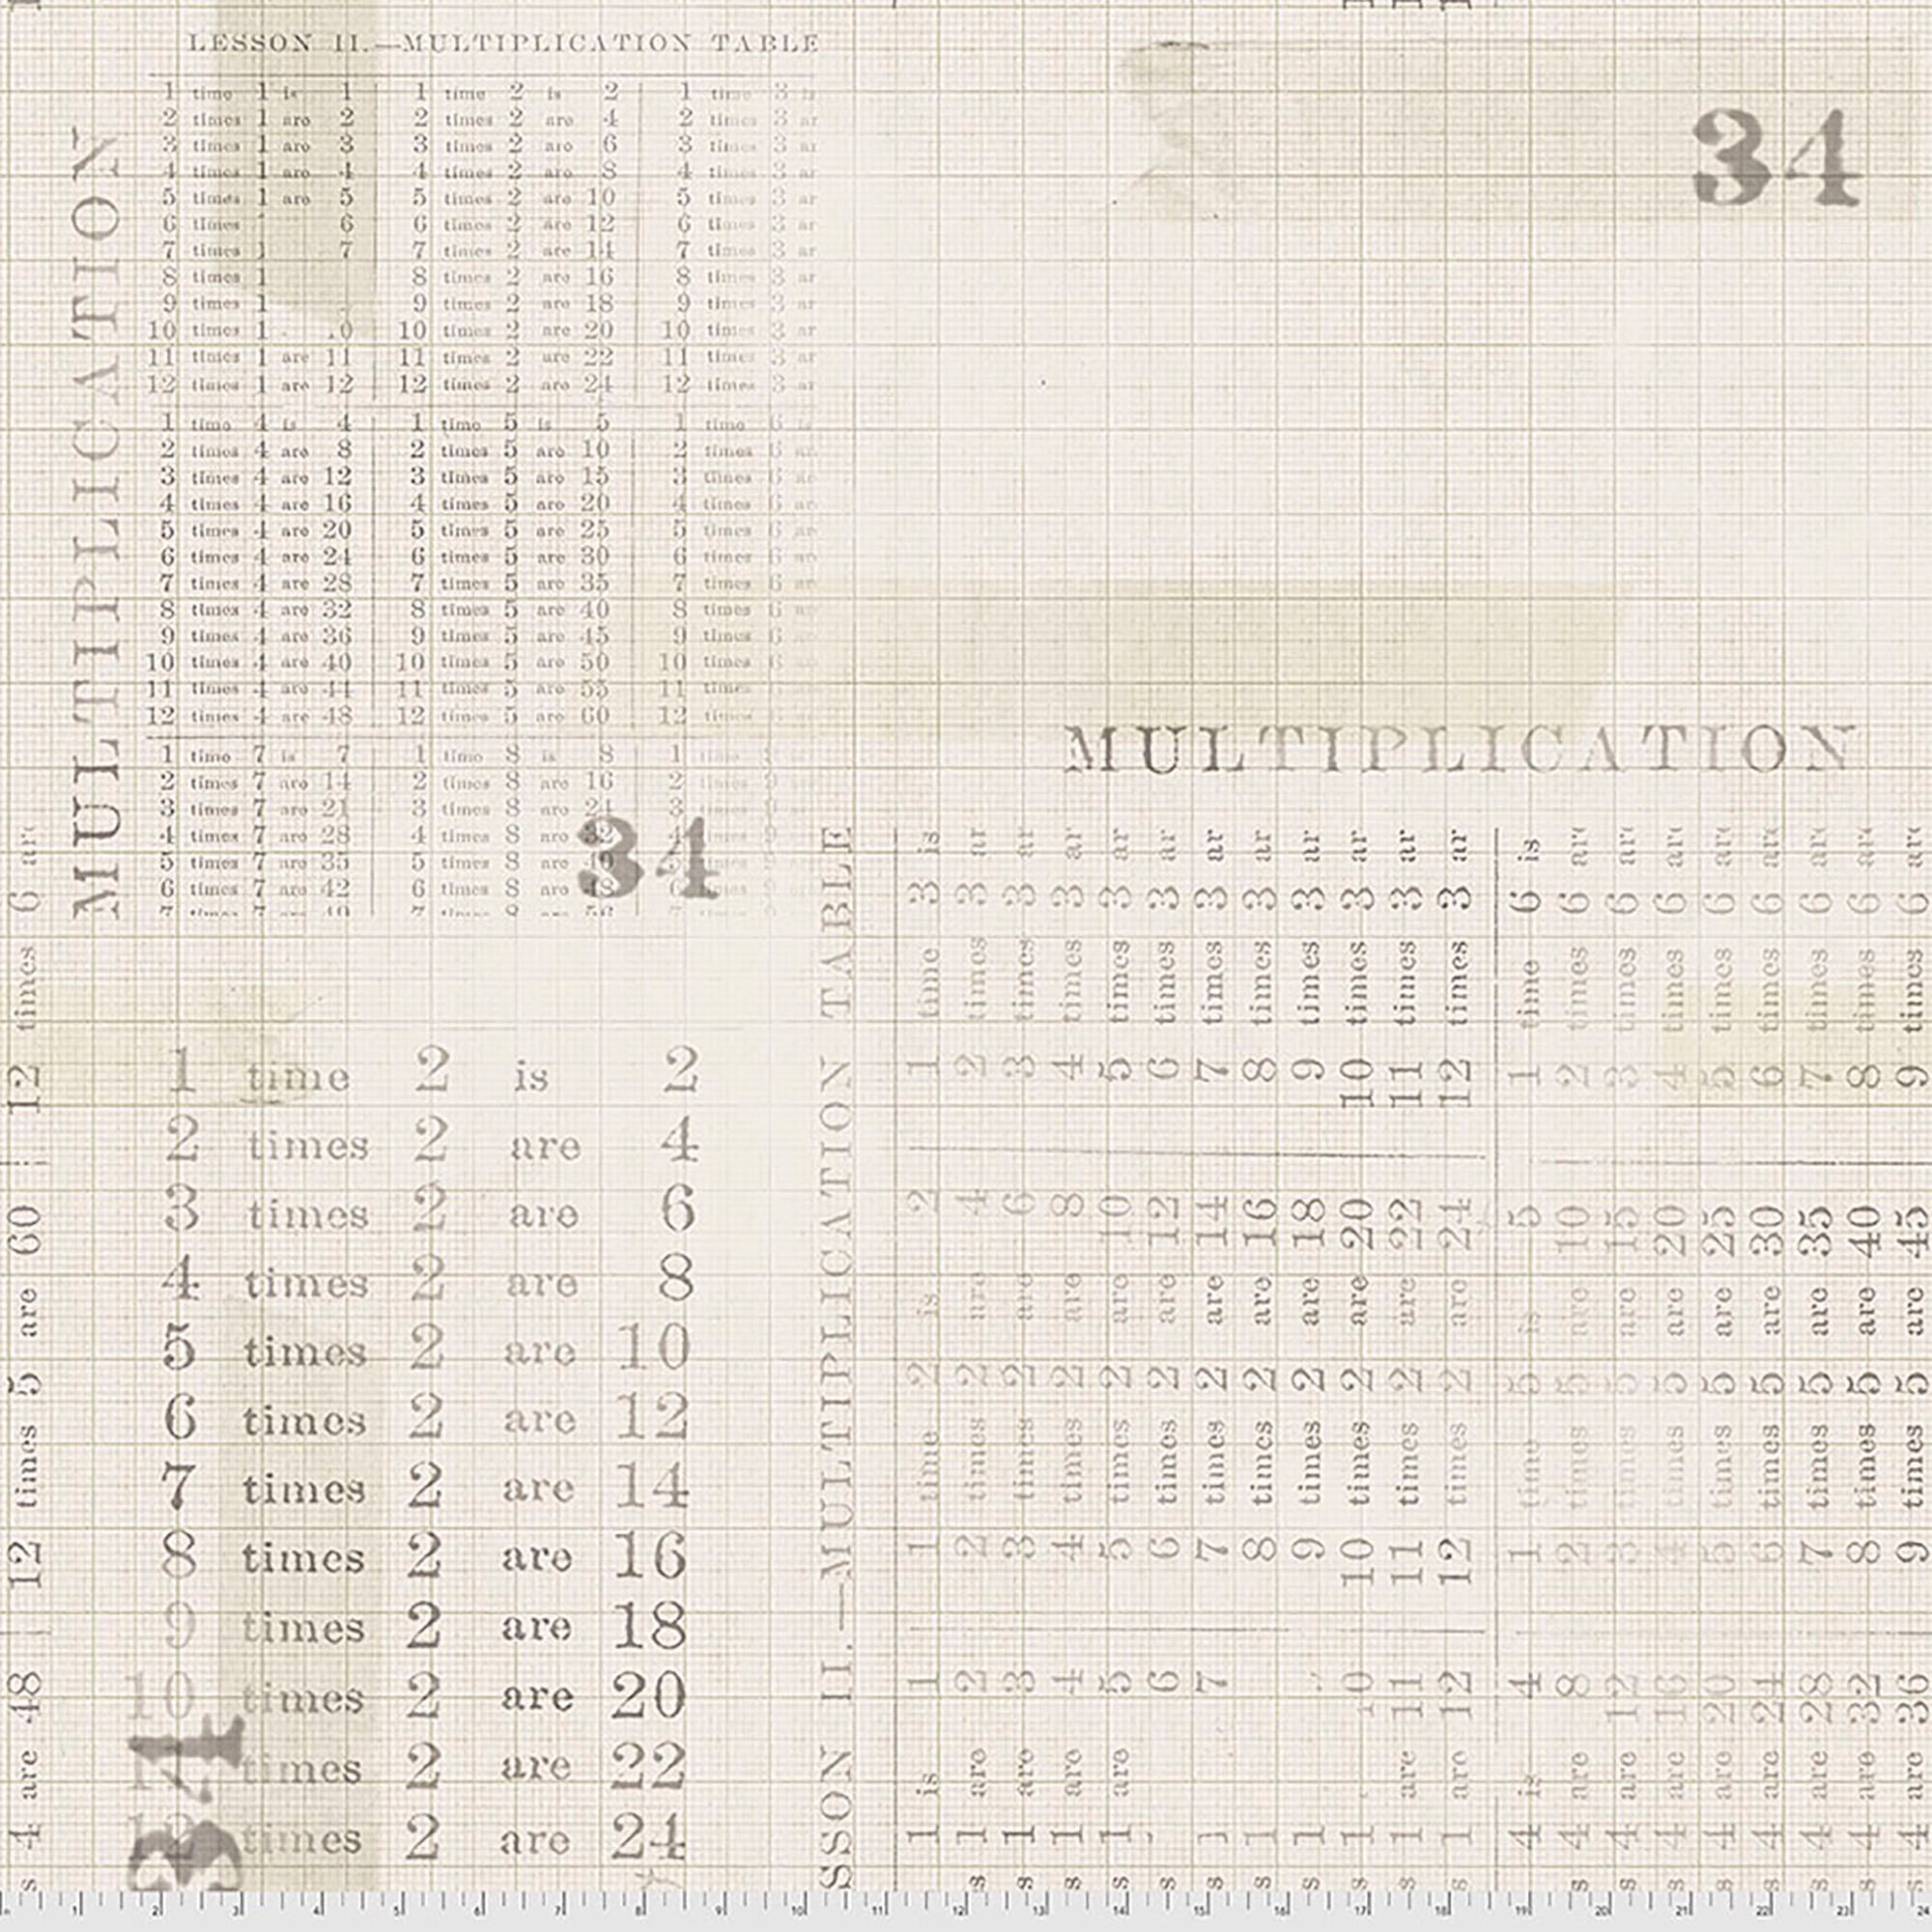 LESSON II.—MULTIPLICATION TABLE
1 time 1 is 1 1 time 2 is 2 1 time 3 is
2 times 1 are 2 2 times 2 are 4 2 times 3 ar
3 times 1 are 3 3 times 2 are 6 3 times 3 ar
4 times 1 are 4 4 times 2 are 8 4 times 3 ar
5 times 1 are 5 5 times 2 are 10 5 times 3 ar
6 times 6 6 times 2 are 12 6 times 3 ar
7 times 1 7 7 times 2 are 14 7 times 3 ar
8 times 1 8 times 2 are 16 8 times 3 ar
9 times 1 9 times 2 are 18 9 times 3 ar
10 times 1 0 10 times 2 are 20 10 times 3 ar
11 times 1 are 11 11 times 2 are 22 11 times 3 ar
12 times 1 are 12 12 times 2 are 24 12 times 3 ar
1 time 4 is 4 1 time 5 is 5 1 time 6 is
2 times 4 are 8 2 times 5 are 10 2 times 6 ar
3 times 4 are 12 3 times 5 are 15 3 times 6 ar
4 times 4 are 16 4 times 5 are 20 4 times 6 ar
5 times 4 are 20 5 times 5 are 25 5 times 6 ar
6 times 4 are 24 6 times 5 are 30 6 times 6 ar
7 times 4 are 28 7 times 5 are 35 7 times 6 ar
8 times 4 are 32 8 times 5 are 40 8 times 6 ar
9 times 4 are 36 9 times 5 are 45 9 times 6
10 times 4 are 40 10 times 5 are 50 10 times 6
11 times 4 are 44 11 times 5 are 55 11 times
12 times 4 are 48 12 times 5 are 60 12 times
1 time 7 is 7 1 time 8 is 8 1 time 9
2 times 7 are 14 2 times 8 are 16 2 times 9
3 times 7 are 21 3 times 8 are 24 3 times 9
4 times 7 are 28 4 times 8 are 32 4 times 9
5 times 7 are 35 5 times 8 are 40 5 times 9
6 times 7 are 42 6 times 8 are 48 6 times 9
MULTIPLICATION
34
34
MULTIPLICATION
1 time 2 is 2
2 times 2 are 4
3 times 2 are 6
4 times 2 are 8
5 times 2 are 10
6 times 2 are 12
7 times 2 are 14
8 times 2 are 16
9 times 2 are 18
10 times 2 are 20
times 2 are 22
12 times 2 are 24
34
s 4 are 48 12 times 5 are 60 12 times 6 are
SSON II.—MULTIPLICATION TABLE
1 is 1 1 time 2 is 2 1 time 3 is
s 1 are 2 2 times 2 are 4 2 times 3 ar
s 1 are 3 3 times 2 are 6 3 times 3 ar
s 1 are 4 4 times 2 are 8 4 times 3 ar
s 1 are 5 5 times 2 are 10 5 times 3 ar
s 6 6 times 2 are 12 6 times 3 ar
s 1 7 7 times 2 are 14 7 times 3 ar
s 1 8 times 2 are 16 8 times 3 ar
s 1 9 times 2 are 18 9 times 3 ar
s 1 0 10 times 2 are 20 10 times 3 ar
s 1 are 11 11 times 2 are 22 11 times 3 ar
s 1 are 12 12 times 2 are 24 12 times 3 ar
4 is 4 1 time 5 is 5 1 time 6 is
s 4 are 8 2 times 5 are 10 2 times 6 are
s 4 are 12 3 times 5 are 15 3 times 6 are
s 4 are 16 4 times 5 are 20 4 times 6 are
s 4 are 20 5 times 5 are 25 5 times 6 are
s 4 are 24 6 times 5 are 30 6 times 6 are
s 4 are 28 7 times 5 are 35 7 times 6 are
s 4 are 32 8 times 5 are 40 8 times 6 are
s 4 are 36 9 times 5 are 45 9 times 6 are
1 2 3 4 5 6 7 8 9 10 11 12 13 14 15 16 17 18 19 20 21 22 23 24